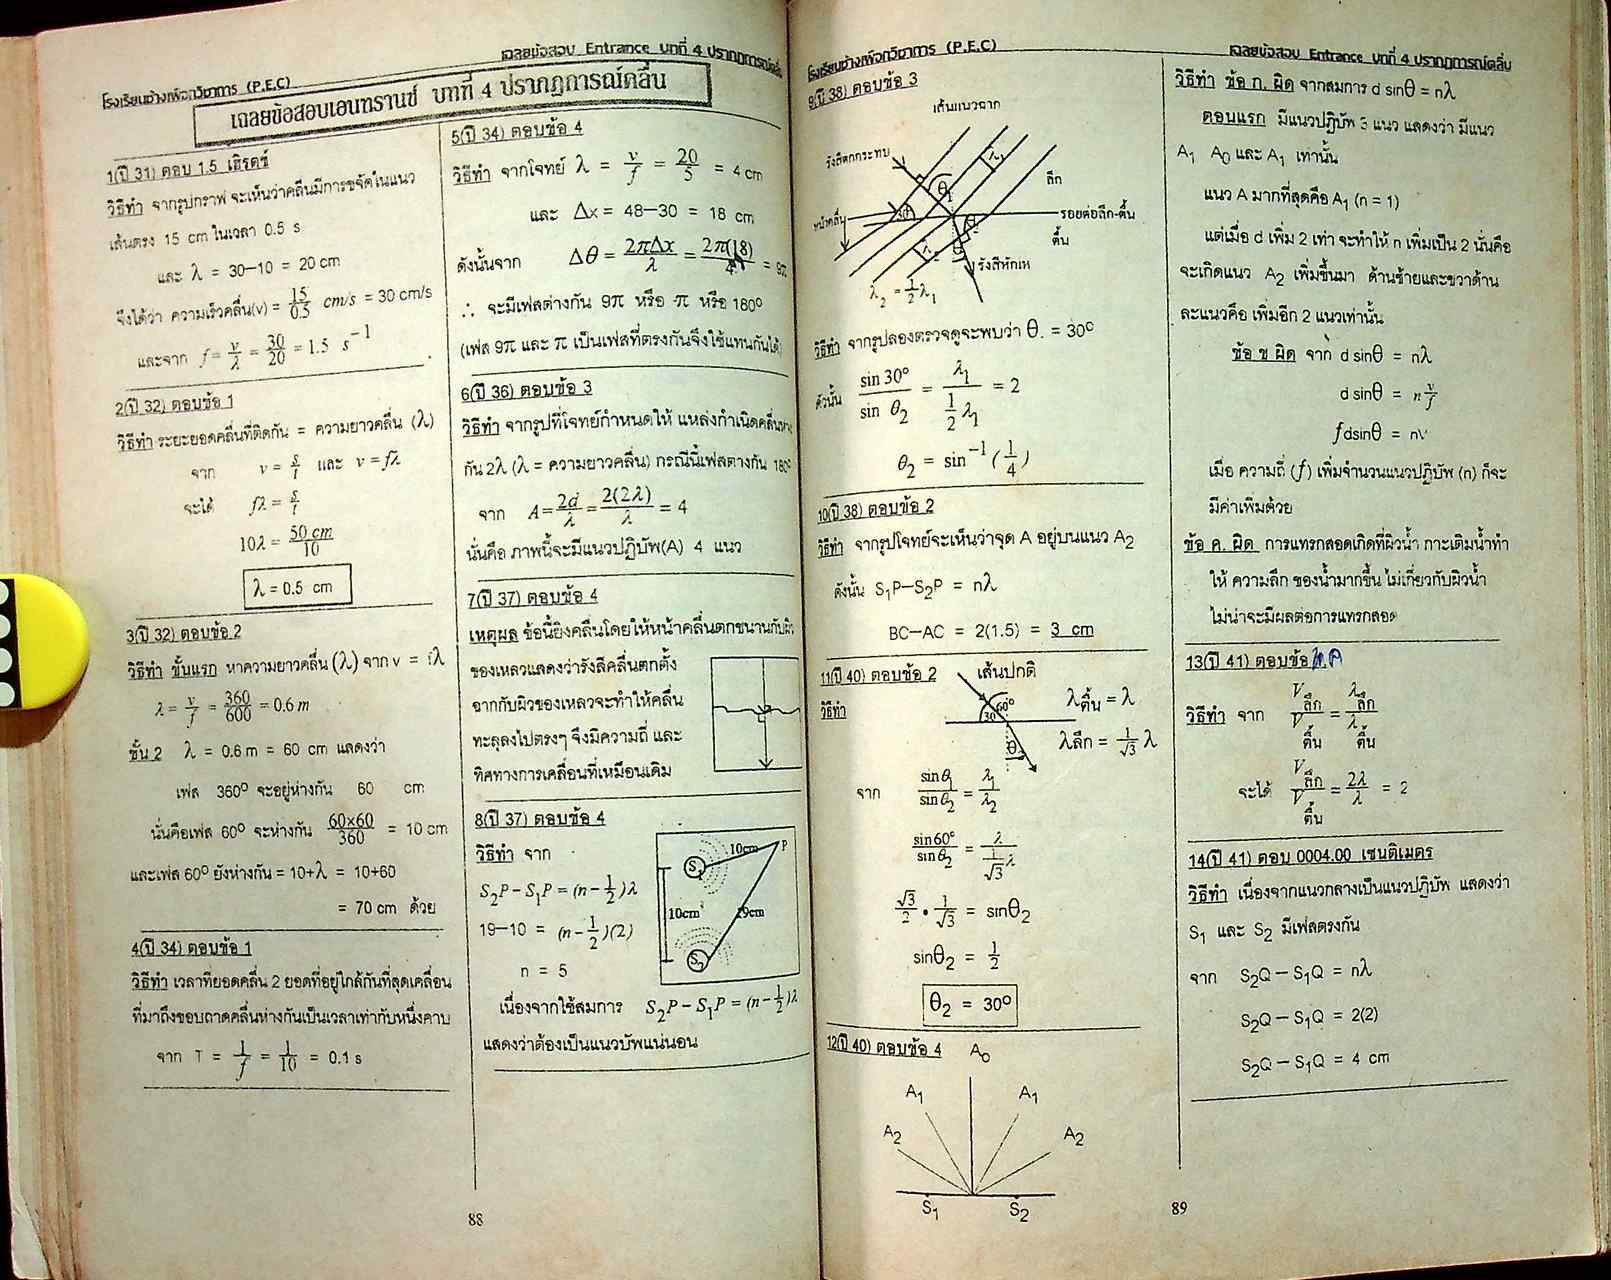 โรงเรียนช้างเผือกวิชาการ (P.E.C)
เฉลยข้อสอบ Entrance บทที่ 4 ปรากฏการณ์คลื่น
เฉลยข้อสอบเอนทรานซ์ บทที่ 4 ปรากฏการณ์คลื่น
1(ปี 31) ตอบ 1.5 เฮิรตซ์
วิธีทำ จากรูปกราฟ จะเห็นว่าคลื่นมีการขจัดในแนว
เส้นตรง 15 cm ในเวลา 0.5 s
และ λ = 30–10 = 20 cm
จึงได้ว่า ความเร็วคลื่น(v) = 15/0.5 cm/s = 30 cm/s
และจาก f = v/λ = 30/20 = 1.5 s⁻¹
2(ปี 32) ตอบข้อ 1
วิธีทำ ระยะยอดคลื่นที่ติดกัน = ความยาวคลื่น (λ)
จาก v = s/t และ v = fλ
จะได้ fλ = s/t
10λ = 50 cm/10
λ = 0.5 cm
3(ปี 32) ตอบข้อ 2
วิธีทำ ขั้นแรก หาความยาวคลื่น (λ) จาก v = fλ
λ = v/f = 360/600 = 0.6 m
ขั้น 2 λ = 0.6 m = 60 cm แสดงว่า
เฟส 360° จะอยู่ห่างกัน 60 cm
นั่นคือเฟส 60° จะห่างกัน 60×60/360 = 10 cm
และเฟส 60° ยังห่างกัน = 10+λ = 10+60
= 70 cm ด้วย
4(ปี 34) ตอบข้อ 1
วิธีทำ เวลาที่ยอดคลื่น 2 ยอดที่อยู่ใกล้กันที่สุดเคลื่อน
ที่มาถึงขอบถาดคลื่นห่างกันเป็นเวลาเท่ากับหนึ่งคาบ
จาก T = 1/f = 1/10 = 0.1 s
5(ปี 34) ตอบข้อ 4
วิธีทำ จากโจทย์ λ = v/f = 20/5 = 4 cm
และ Δx = 48–30 = 18 cm
ดังนั้นจาก Δθ = 2πΔx/λ = 2π(18)/4 = 9π
∴ จะมีเฟสต่างกัน 9π หรือ π หรือ 180°
(เฟส 9π และ π เป็นเฟสที่ตรงกันจึงใช้แทนกันได้)
6(ปี 36) ตอบข้อ 3
วิธีทำ จากรูปที่โจทย์กำหนดให้ แหล่งกำเนิดคลื่นห่าง
กัน 2λ (λ = ความยาวคลื่น) กรณีนี้เฟสต่างกัน 180°
จาก A = 2d/λ = 2(2λ)/λ = 4
นั่นคือ ภาพนี้จะมีแนวปฏิบัพ(A) 4 แนว
7(ปี 37) ตอบข้อ 4
เหตุผล ข้อนี้ยิงคลื่นโดยให้หน้าคลื่นตกขนานกับผิว
ของเหลวแสดงว่ารังสีคลื่นตกตั้ง
ฉากกับผิวของเหลวจะทำให้คลื่น
ทะลุลงไปตรงๆ จึงมีความถี่ และ
ทิศทางการเคลื่อนที่เหมือนเดิม
8(ปี 37) ตอบข้อ 4
วิธีทำ จาก
S₂P – S₁P = (n – 1/2)λ
19–10 = (n – 1/2)(2)
n = 5
S₁
10cm
P
10cm
19cm
S₂
เนื่องจากใช้สมการ S₂P – S₁P = (n – 1/2)λ
แสดงว่าต้องเป็นแนวบัพแน่นอน
88
โรงเรียนช้างเผือกวิชาการ (P.E.C)
เฉลยข้อสอบ Entrance บทที่ 4 ปรากฏการณ์คลื่น
9(ปี 38) ตอบข้อ 3
เส้นแนวฉาก
รังสีตกกระทบ
λ₁
ลึก
θ₁
หน้าคลื่น
30°
รอยต่อลึก-ตื้น
ตื้น
รังสีหักเห
λ₂ = 1/2 λ₁
วิธีทำ จากรูปลองตรวจดูจะพบว่า θ. = 30°
ดังนั้น sin 30°/sin θ₂ = λ₁/(1/2 λ₁) = 2
θ₂ = sin⁻¹(1/4)
10(ปี 38) ตอบข้อ 2
วิธีทำ จากรูปโจทย์จะเห็นว่าจุด A อยู่บนแนว A₂
ดังนั้น S₁P–S₂P = nλ
BC–AC = 2(1.5) = 3 cm
11(ปี 40) ตอบข้อ 2
เส้นปกติ
วิธีทำ
60°
30
θ₂
λตื้น = λ
λลึก = 1/√3 λ
จาก sinθ₁/sinθ₂ = λ₁/λ₂
sin60°/sinθ₂ = λ/(1/√3 λ)
√3/2 • 1/√3 = sinθ₂
sinθ₂ = 1/2
θ₂ = 30°
12(ปี 40) ตอบข้อ 4
A₀
A₁ A₁
A₂ A₂
S₁ S₂
วิธีทำ ข้อ ก. ผิด จากสมการ d sinθ = nλ
ตอนแรก มีแนวปฏิบัพ 3 แนว แสดงว่า มีแนว
A₁ A₀ และ A₁ เท่านั้น
แนว A มากที่สุดคือ A₁ (n = 1)
แต่เมื่อ d เพิ่ม 2 เท่า จะทำให้ n เพิ่มเป็น 2 นั่นคือ
จะเกิดแนว A₂ เพิ่มขึ้นมา ด้านซ้ายและขวาด้าน
ละแนวคือ เพิ่มอีก 2 แนวเท่านั้น
ข้อ ข ผิด จาก d sinθ = nλ
d sinθ = n v/f
fdsinθ = nv
เมื่อ ความถี่ (f) เพิ่มจำนวนแนวปฏิบัพ (n) ก็จะ
มีค่าเพิ่มด้วย
ข้อ ค. ผิด การแทรกสอดเกิดที่ผิวน้ำ การเติมน้ำทำ
ให้ ความลึก ของน้ำมากขึ้น ไม่เกี่ยวกับผิวน้ำ
ไม่น่าจะมีผลต่อการแทรกสอด
13(ปี 41) ตอบข้อ
วิธีทำ จาก Vลึก/Vตื้น = λลึก/λตื้น
จะได้ Vลึก/Vตื้น = 2λ/λ = 2
14(ปี 41) ตอบ 0004.00 เซนติเมตร
วิธีทำ เนื่องจากแนวกลางเป็นแนวปฏิบัพ แสดงว่า
S₁ และ S₂ มีเฟสตรงกัน
จาก S₂Q – S₁Q = nλ
S₂Q – S₁Q = 2(2)
S₂Q – S₁Q = 4 cm
89